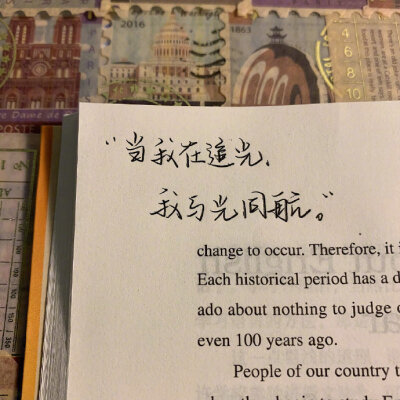 PARIS
2016
1863
4
6
8
10
Notre Dame de
POSTE
"当我在追光,
我与光同航。"
change to occur. Therefore, it i
Each historical period has a d
ado about nothing to judge o
even 100 years ago.
People of our country t